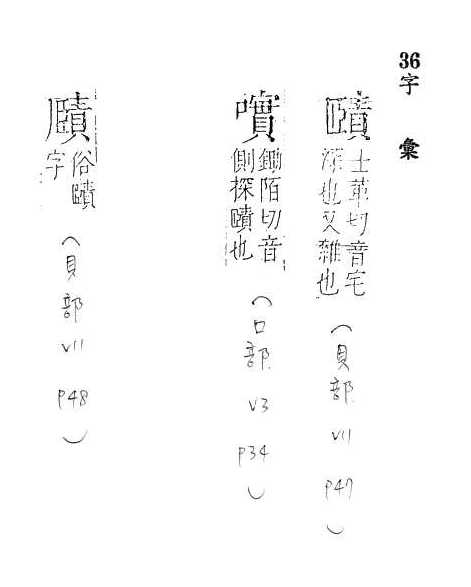 36字 彙
賾
士革切音宅
深也又雜也
(貝部 V11 P47)
鋤陌切音
側探賾也
(口部 V3 P34)
俗賾
字
(貝部 V11 P48)